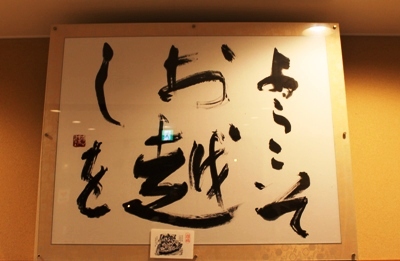 ようこそ
お越
しを